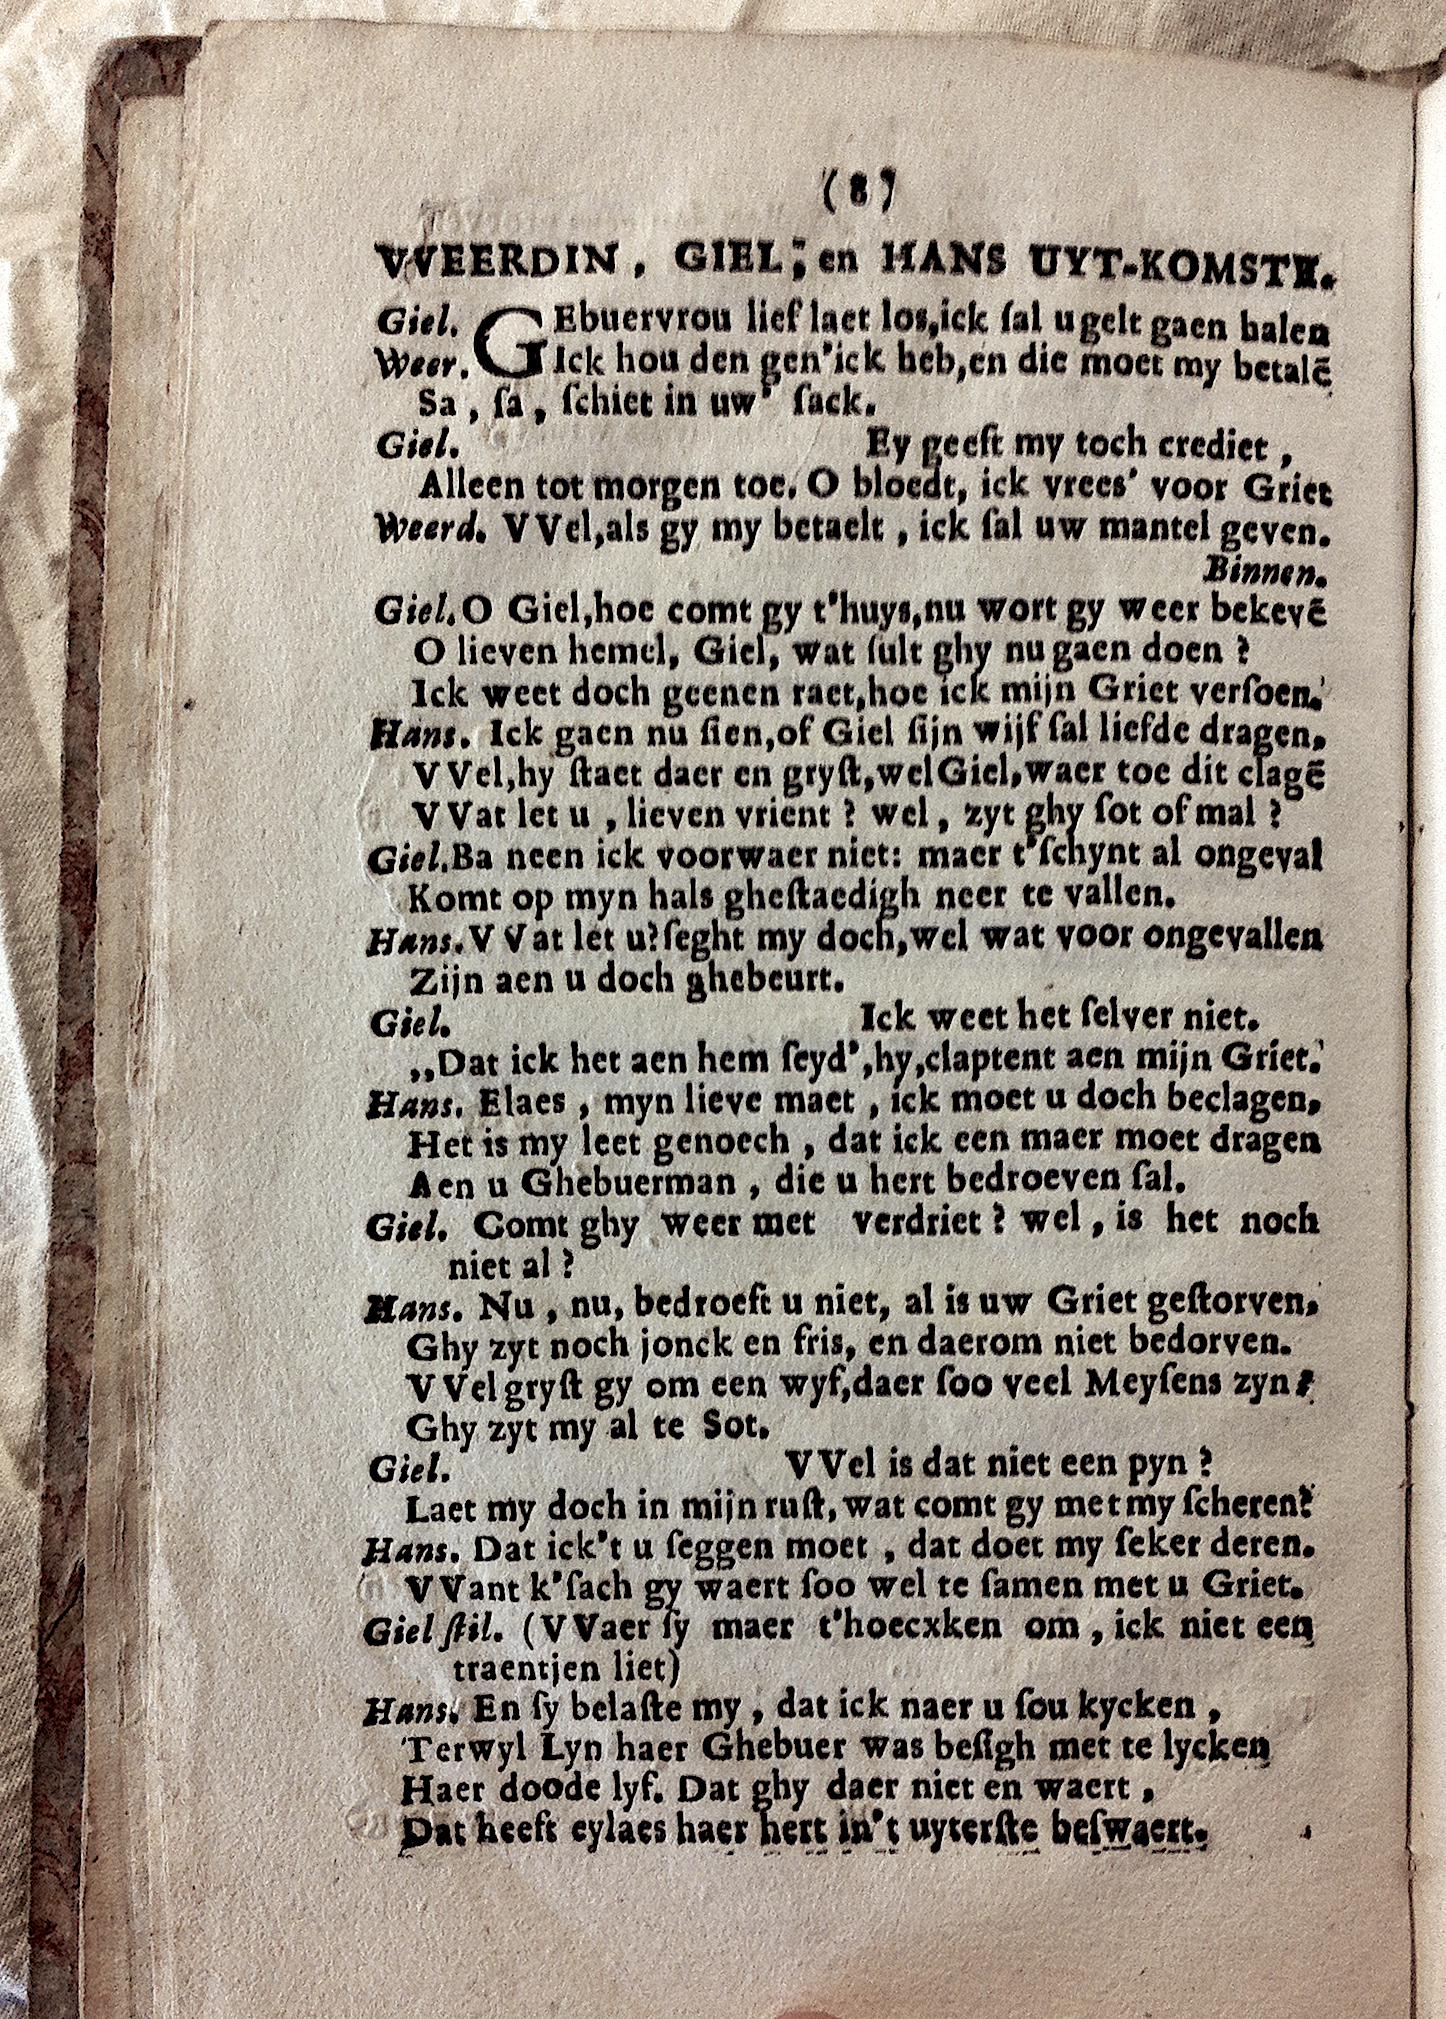 (8)
VVEERDIN, GIEL; en HANS UYT-KOMSTE.
Giel. GEbuervrou lief laet los,ick ſal u gelt gaen halen
Weer. Ick hou den gen'ick heb,en die moet my betalē
Sa, ſa, ſchiet in uw' ſack.
Giel. Ey geeft my toch crediet,
Alleen tot morgen toe. O bloedt, ick vrees' voor Griet
Weerd. VVel,als gy my betaelt, ick ſal uw mantel geven.
Binnen.
Giel. O Giel,hoe comt gy t'huys,nu wort gy weer bekevē
O lieven hemel, Giel, wat ſult ghy nu gaen doen?
Ick weet doch geenen raet,hoe ick mijn Griet verſoen.
Hans. Ick gaen nu ſien,of Giel ſijn wijf ſal liefde dragen,
VVel,hy ſtaet daer en gryſt,wel Giel,waer toe dit clagē
VVat let u, lieven vrient? wel, zyt ghy ſot of mal?
Giel. Ba neen ick voorwaer niet: maer t'ſchynt al ongeval
Komt op myn hals gheſtaedigh neer te vallen.
Hans. VVat let u? ſeght my doch,wel wat voor ongevallen
Zijn aen u doch ghebeurt.
Giel. Ick weet het ſelver niet.
,,Dat ick het aen hem ſeyd',hy,claptent aen mijn Griet.
Hans. Elaes, myn lieve maet, ick moet u doch beclagen,
Het is my leet genoech, dat ick een maer moet dragen
Aen u Ghebuerman, die u hert bedroeven ſal.
Giel. Comt ghy weer met verdriet? wel, is het noch
niet al?
Hans. Nu, nu, bedroeft u niet, al is uw Griet geſtorven,
Ghy zyt noch jonck en fris, en daerom niet bedorven.
VVel gryſt gy om een wyf,daer ſoo veel Meyſens zyn?
Ghy zyt my al te Sot.
Giel. VVel is dat niet een pyn?
Laet my doch in mijn ruſt, wat comt gy met my ſcheren?
Hans. Dat ick't u ſeggen moet, dat doet my ſeker deren.
VVant k'ſach gy waert ſoo wel te ſamen met u Griet.
Giel ſtil. (VVaer ſy maer t'hoecxken om, ick niet een
traentjen liet)
Hans. En ſy belaſte my, dat ick naer u ſou kycken,
Terwyl Lyn haer Ghebuer was beſigh met te lycken
Haer doode lyf. Dat ghy daer niet en waert,
Dat heeft eylaes haer hert in't uyterſte beſwaert.